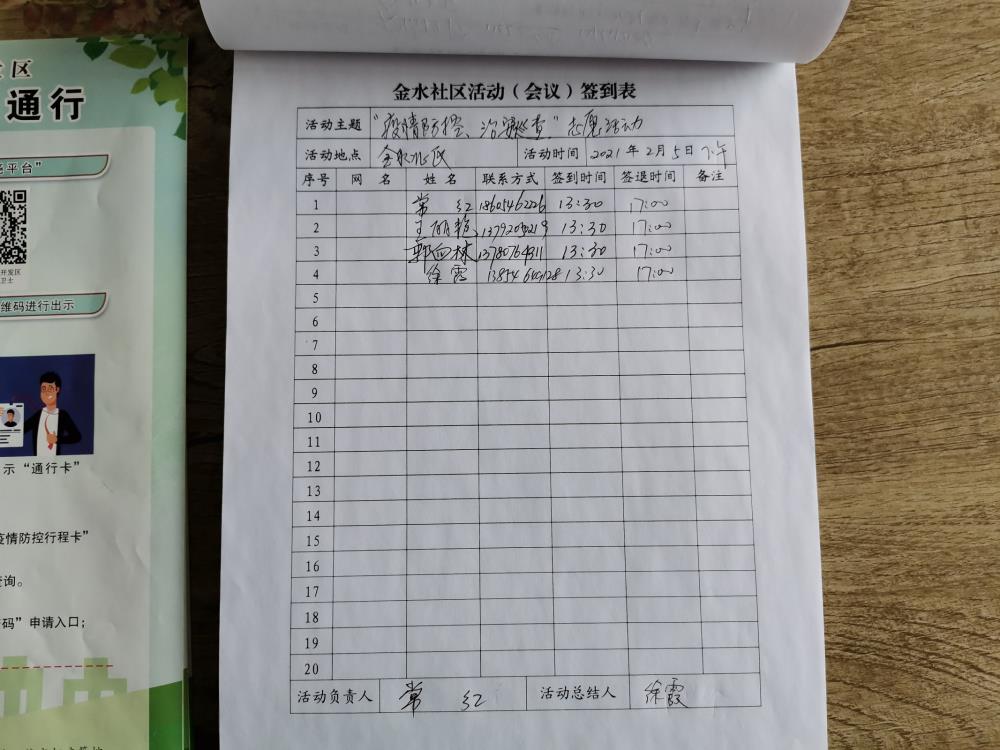 区
通行
平台”
开发区
卫士
维码进行出示
示“通行卡”
疫情防控行程卡”
查询。
码”申请入口；
金水社区活动（会议）签到表
活动主题 “疫情防控、治安巡查”志愿活动
活动地点 金水小区 活动时间 2021年2月5日下午
序号 网名 姓名 联系方式 签到时间 签退时间 备注
1 常红 18605462226 13:30 17:00
2 王丽 13:30 17:00
3 郭 13:30 17:00
4 徐霞 13:30 17:00
5
6
7
8
9
10
11
12
13
14
15
16
17
18
19
20
活动负责人 常红 活动总结人 徐霞